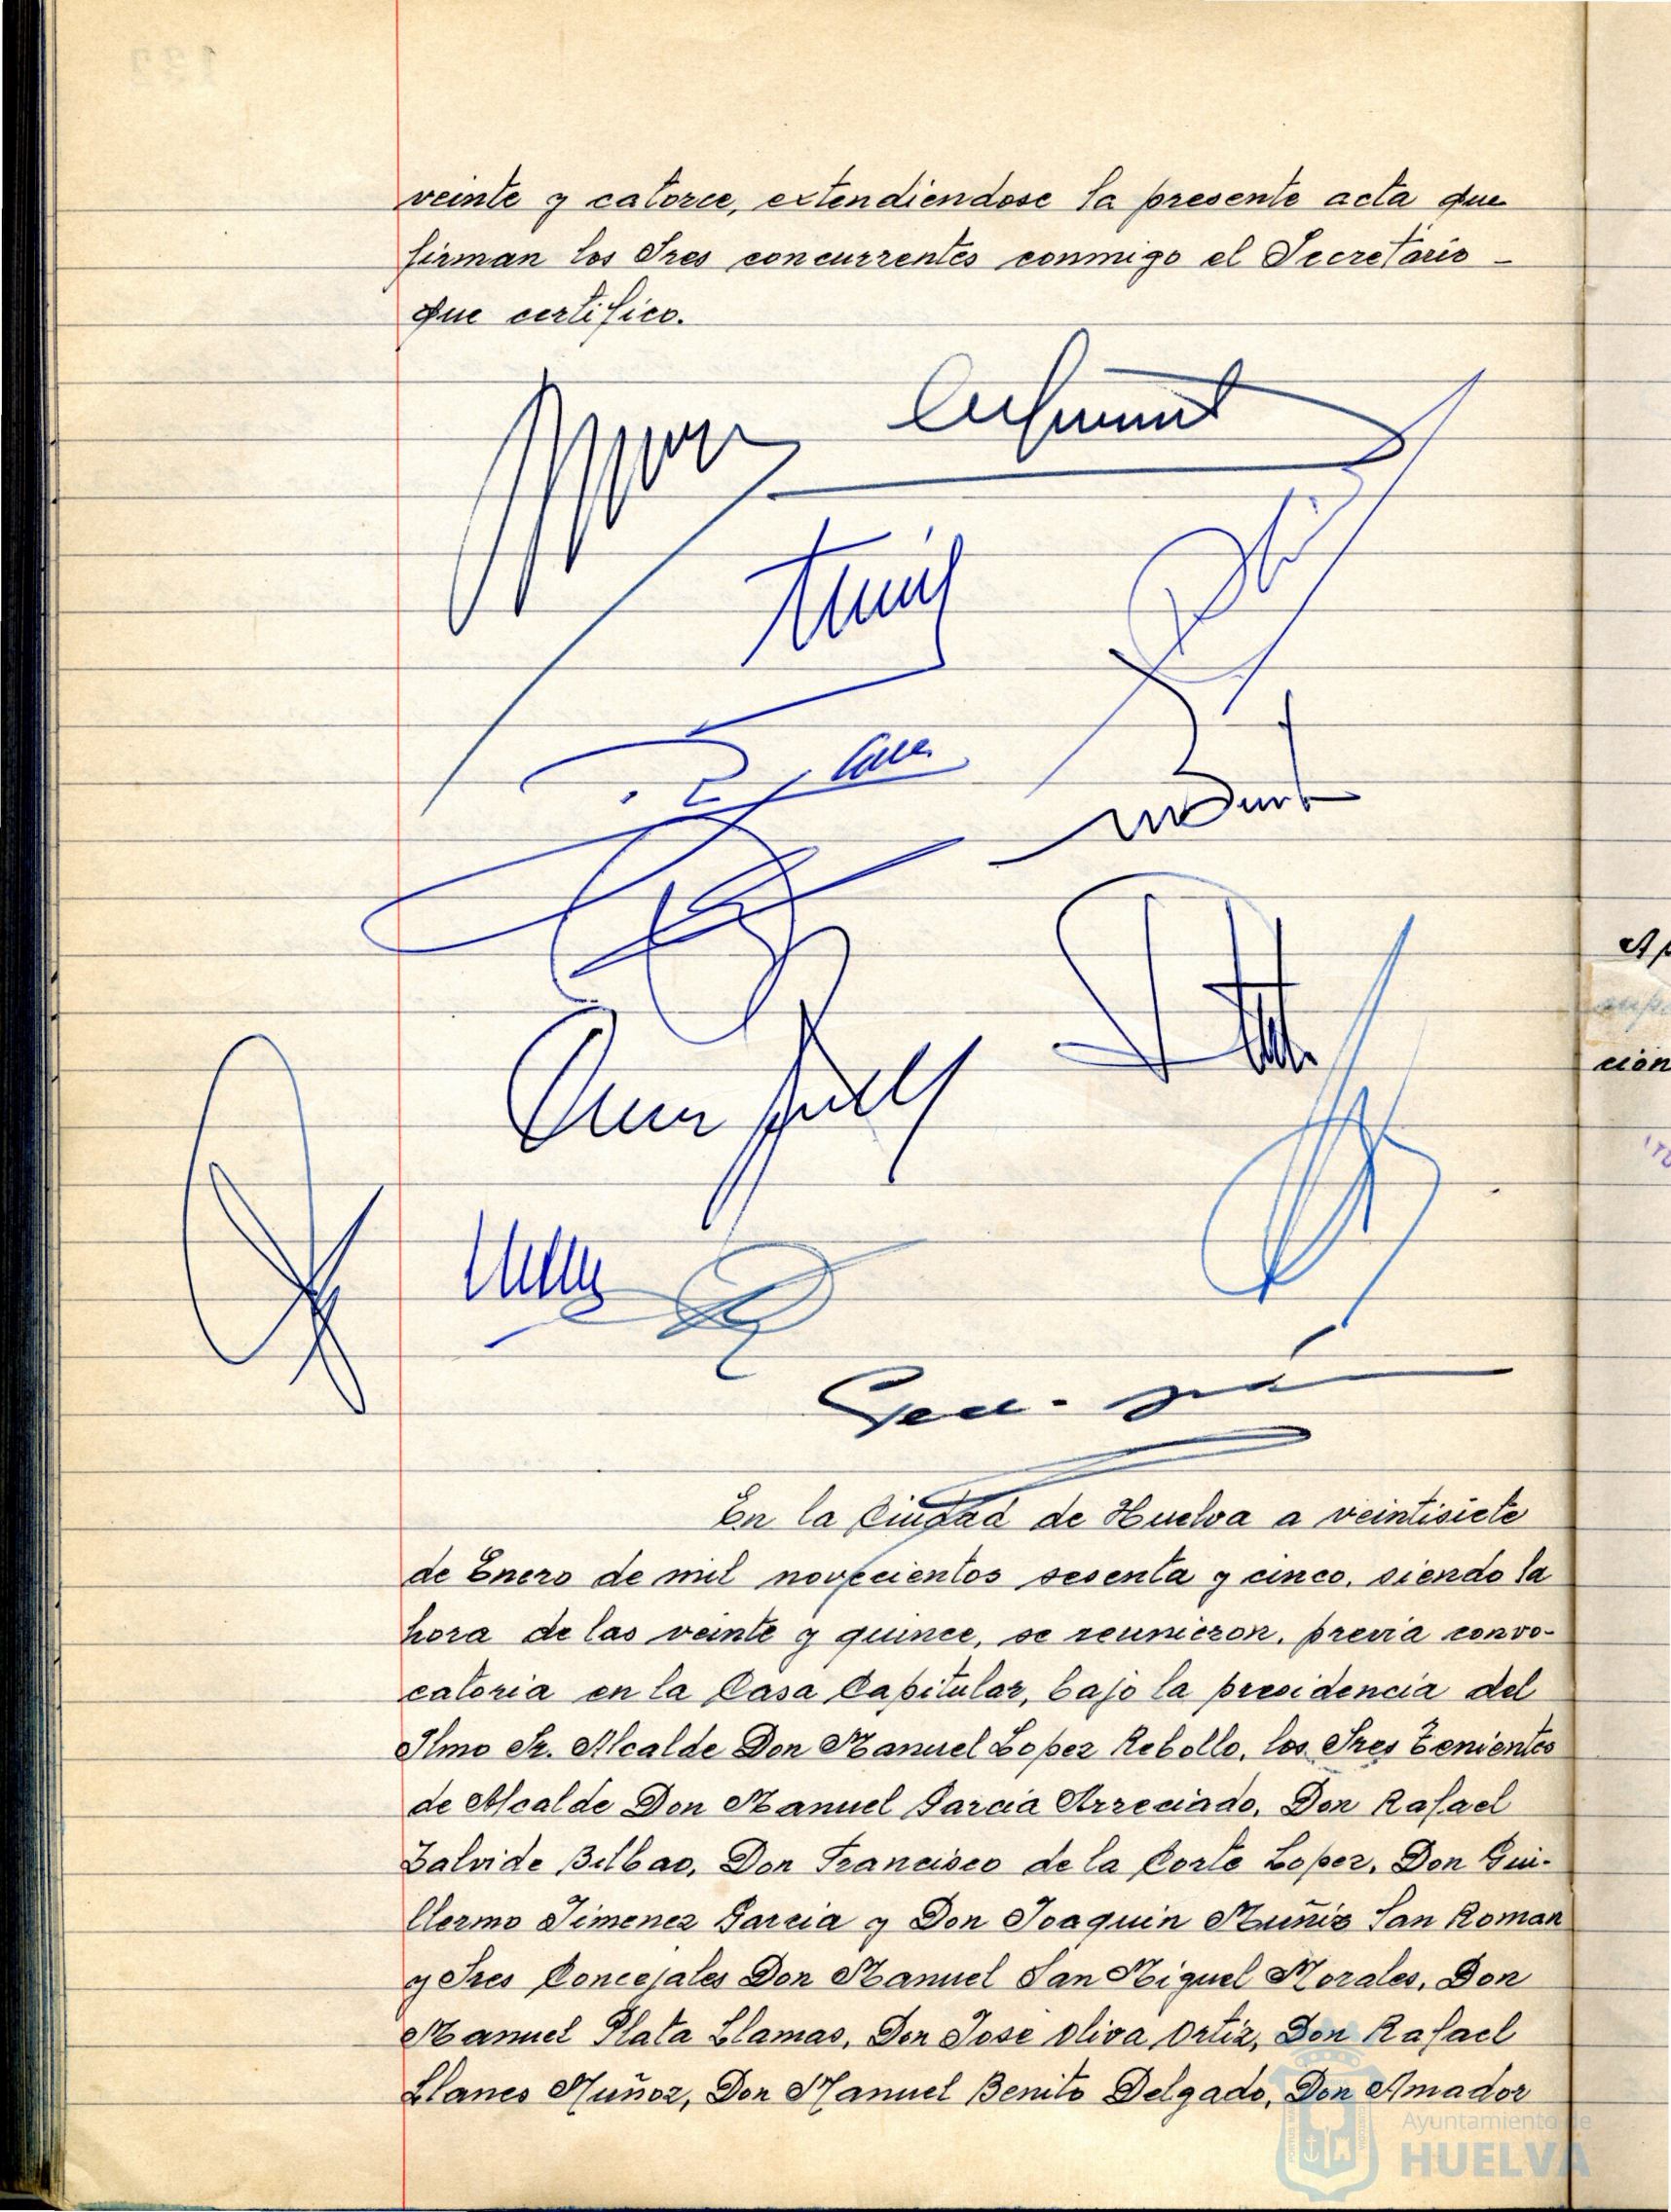 veinte y catorce, extendiendose la presente acta que
firman los Sres concurrentes conmigo el Secretario -
que certifico.
En la Ciudad de Huelva a veintisiete
de Enero de mil novecientos sesenta y cinco, siendo la
hora de las veinte y quince, se reunieron, previa convo-
catoria en la Casa Capitular, bajo la presidencia del
Ilmo Sr. Alcalde Don Manuel Lopez Rebollo, los Sres Tenientes
de Alcalde Don Manuel Garcia Arreciado, Don Rafael
Zalvide Bilbao, Don Francisco de la Corte Lopez, Don Gui-
llermo Jimenez Garcia y Don Joaquin Muñiz San Roman
y Sres Concejales Don Manuel San Miguel Morales, Don
Manuel Plata Llamas, Don Jose Oliva Ortiz, Don Rafael
Llanes Muñoz, Don Manuel Benito Delgado, Don Amador
Ayuntamiento de
HUELVA
cion